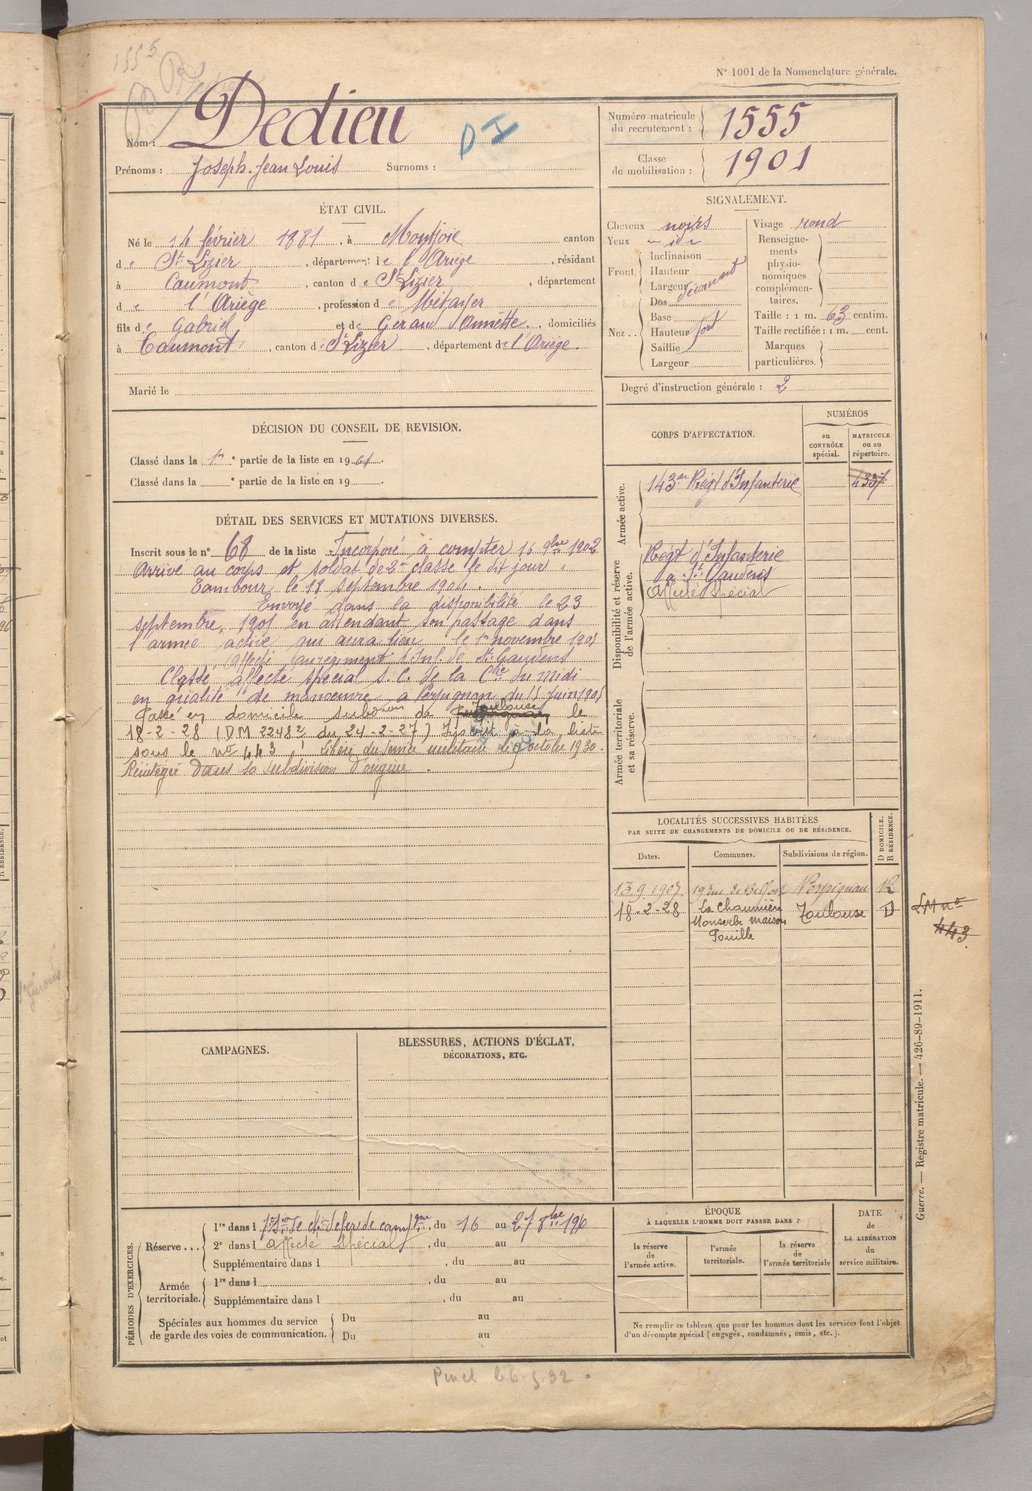 1555
N° 1001 de la Nomenclature générale.
Nom : Dedieu
D I
Prénoms : Joseph. Jean Louis Surnoms :
Numéro matricule du recrutement : 1555
Classe de mobilisation : 1901
ÉTAT CIVIL.
Né le 14 février 1881, à Montjoie canton
de St Lizier, département de l'Ariège, résidant
à Caumont, canton de St Lizier, département
de l'Ariège, profession de Métayer
fils de Gabriel et de Geraud Annette, domiciliés
à Caumont, canton de St Lizier, département de l'Ariège.
Marié le
SIGNALEMENT.
Cheveux noirs
Yeux
Front
Inclinaison
Hauteur
Largeur
Nez
Dos
Base
Hauteur fort
Saillie
Largeur
Visage rond
Renseignements physionomiques complémentaires.
Taille : 1 m. 63 centim.
Taille rectifiée : 1 m. cent.
Marques particulières.
Degré d'instruction générale : 2
DÉCISION DU CONSEIL DE REVISION.
Classé dans la 1re partie de la liste en 19
Classé dans la e partie de la liste en 19
CORPS D'AFFECTATION.
NUMÉROS
au CONTRÔLE spécial.
MATRICULE ou au répertoire.
Armée active.
143e Régt d'Infanterie
Disponibilité et réserve de l'armée active.
Régt d'Infanterie
de St Gaudens
Affecté spécial
Armée territoriale et sa réserve.
DÉTAIL DES SERVICES ET MUTATIONS DIVERSES.
Inscrit sous le n° 68 de la liste Incorporé à compter 15 9bre 1902
Arrivé au corps et soldat de 2e classe le dit jour.
Tambour le 18 septembre 1904.
Envoyé dans la disponibilité le 23
septembre 1905 en attendant son passage dans
l'armée active qui aura lieu le 1er novembre 1905
Affecté au régiment d'Inf. de St Gaudens
Classé affecté spécial s. C. de la Cie du midi
en qualité de manœuvre à Perpignan du 15 Juin 1908
Passé en domicile subdon de Toulouse le
18-2-28 (DM 2248 du 24-2-27) Inscrit à la liste
sous le n° 443 Libéré du service militaire le octobre 1930.
Réintégré dans la subdivision d'origine.
LOCALITÉS SUCCESSIVES HABITÉES
PAR SUITE DE CHANGEMENTS DE DOMICILE OU DE RÉSIDENCE.
Dates. Communes. Subdivisions de région. D DOMICILE. R RÉSIDENCE.
13.9.1907 19 rue de Belfort Perpignan R
18-2-28 La Chaumière Toulouse D
maison
Pouille
443
CAMPAGNES.
BLESSURES, ACTIONS D'ÉCLAT, DÉCORATIONS, ETC.
Guerre. — Registre matricule. — 426-89-1911.
PÉRIODES D'EXERCICES.
Réserve...
1re dans l du 16 au 27 8bre 190
2e dans l affecté spécial, du au
Supplémentaire dans l , du au
Armée territoriale.
1re dans l , du au
Supplémentaire dans l , du au
Spéciales aux hommes du service de garde des voies de communication.
Du au
Du au
ÉPOQUE
À LAQUELLE L'HOMME DOIT PASSER DANS :
la réserve de l'armée active.
l'armée territoriale.
la réserve de l'armée territoriale
DATE de LA LIBÉRATION du service militaire.
Ne remplir ce tableau que pour les hommes dont les services font l'objet
d'un décompte spécial (engagés, condamnés, omis, etc.).